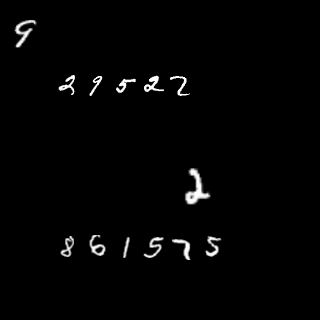 9
29527
2
861575